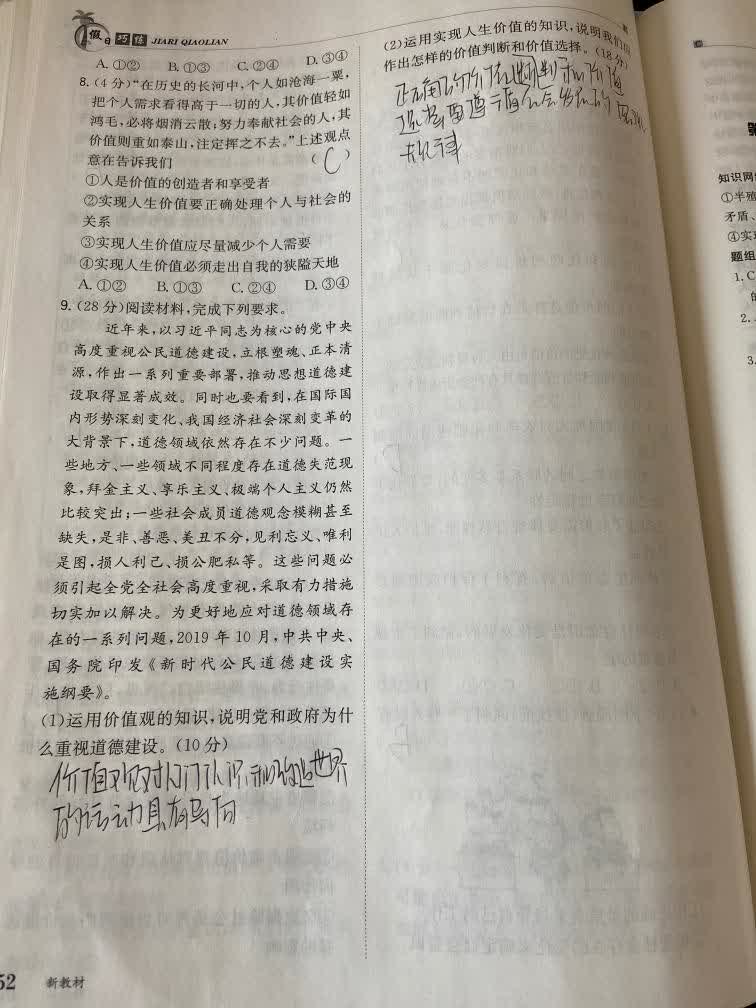 假日巧练 JIARI QIAOLIAN
A. ①② B. ①③ C. ②④ D. ③④
8. (4 分)“在历史的长河中,个人如沧海一粟,
把个人需求看得高于一切的人,其价值轻如
鸿毛,必将烟消云散;努力奉献社会的人,其
价值则重如泰山,注定挥之不去。”上述观点
意在告诉我们 ( C )
①人是价值的创造者和享受者
②实现人生价值要正确处理个人与社会的
关系
③实现人生价值应尽量减少个人需要
④实现人生价值必须走出自我的狭隘天地
A. ①② B. ①③ C. ②④ D. ③④
9. (28 分)阅读材料,完成下列要求。
近年来,以习近平同志为核心的党中央
高度重视公民道德建设,立根塑魂、正本清
源,作出一系列重要部署,推动思想道德建
设取得显著成效。同时也要看到,在国际国
内形势深刻变化、我国经济社会深刻变革的
大背景下,道德领域依然存在不少问题。一
些地方、一些领域不同程度存在道德失范现
象,拜金主义、享乐主义、极端个人主义仍然
比较突出;一些社会成员道德观念模糊甚至
缺失,是非、善恶、美丑不分,见利忘义、唯利
是图,损人利己、损公肥私等。这些问题必
须引起全党全社会高度重视,采取有力措施
切实加以解决。为更好地应对道德领域存
在的一系列问题,2019 年 10 月,中共中央、
国务院印发《新时代公民道德建设实
施纲要》。
(1)运用价值观的知识,说明党和政府为什
么重视道德建设。(10 分)
价值观对人们认识和改造世界
的活动具有导向
52 新教材
(2)运用实现人生价值的知识,说明我们应
作出怎样的价值判断和价值选择。(18 分)
正确的价值判断和价值
选择要遵循社会发展的客观
规律
知识网
①半殖
矛盾、
④实
题组
1. C
2.
3.